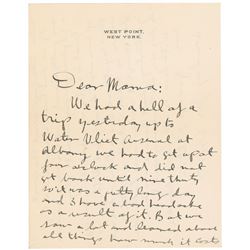 WEST POINT.
NEW YORK.
Dear Mama:
We had a hell of a
trip yesterday up to
Water Vliet Arsenal at
Albany we had to get up at
four oclock and did not
get back until nine thirty
so it was a pretty long day
and I have a bad headache
as a result of it. But we
saw a lot and learned above
all things how much it costs